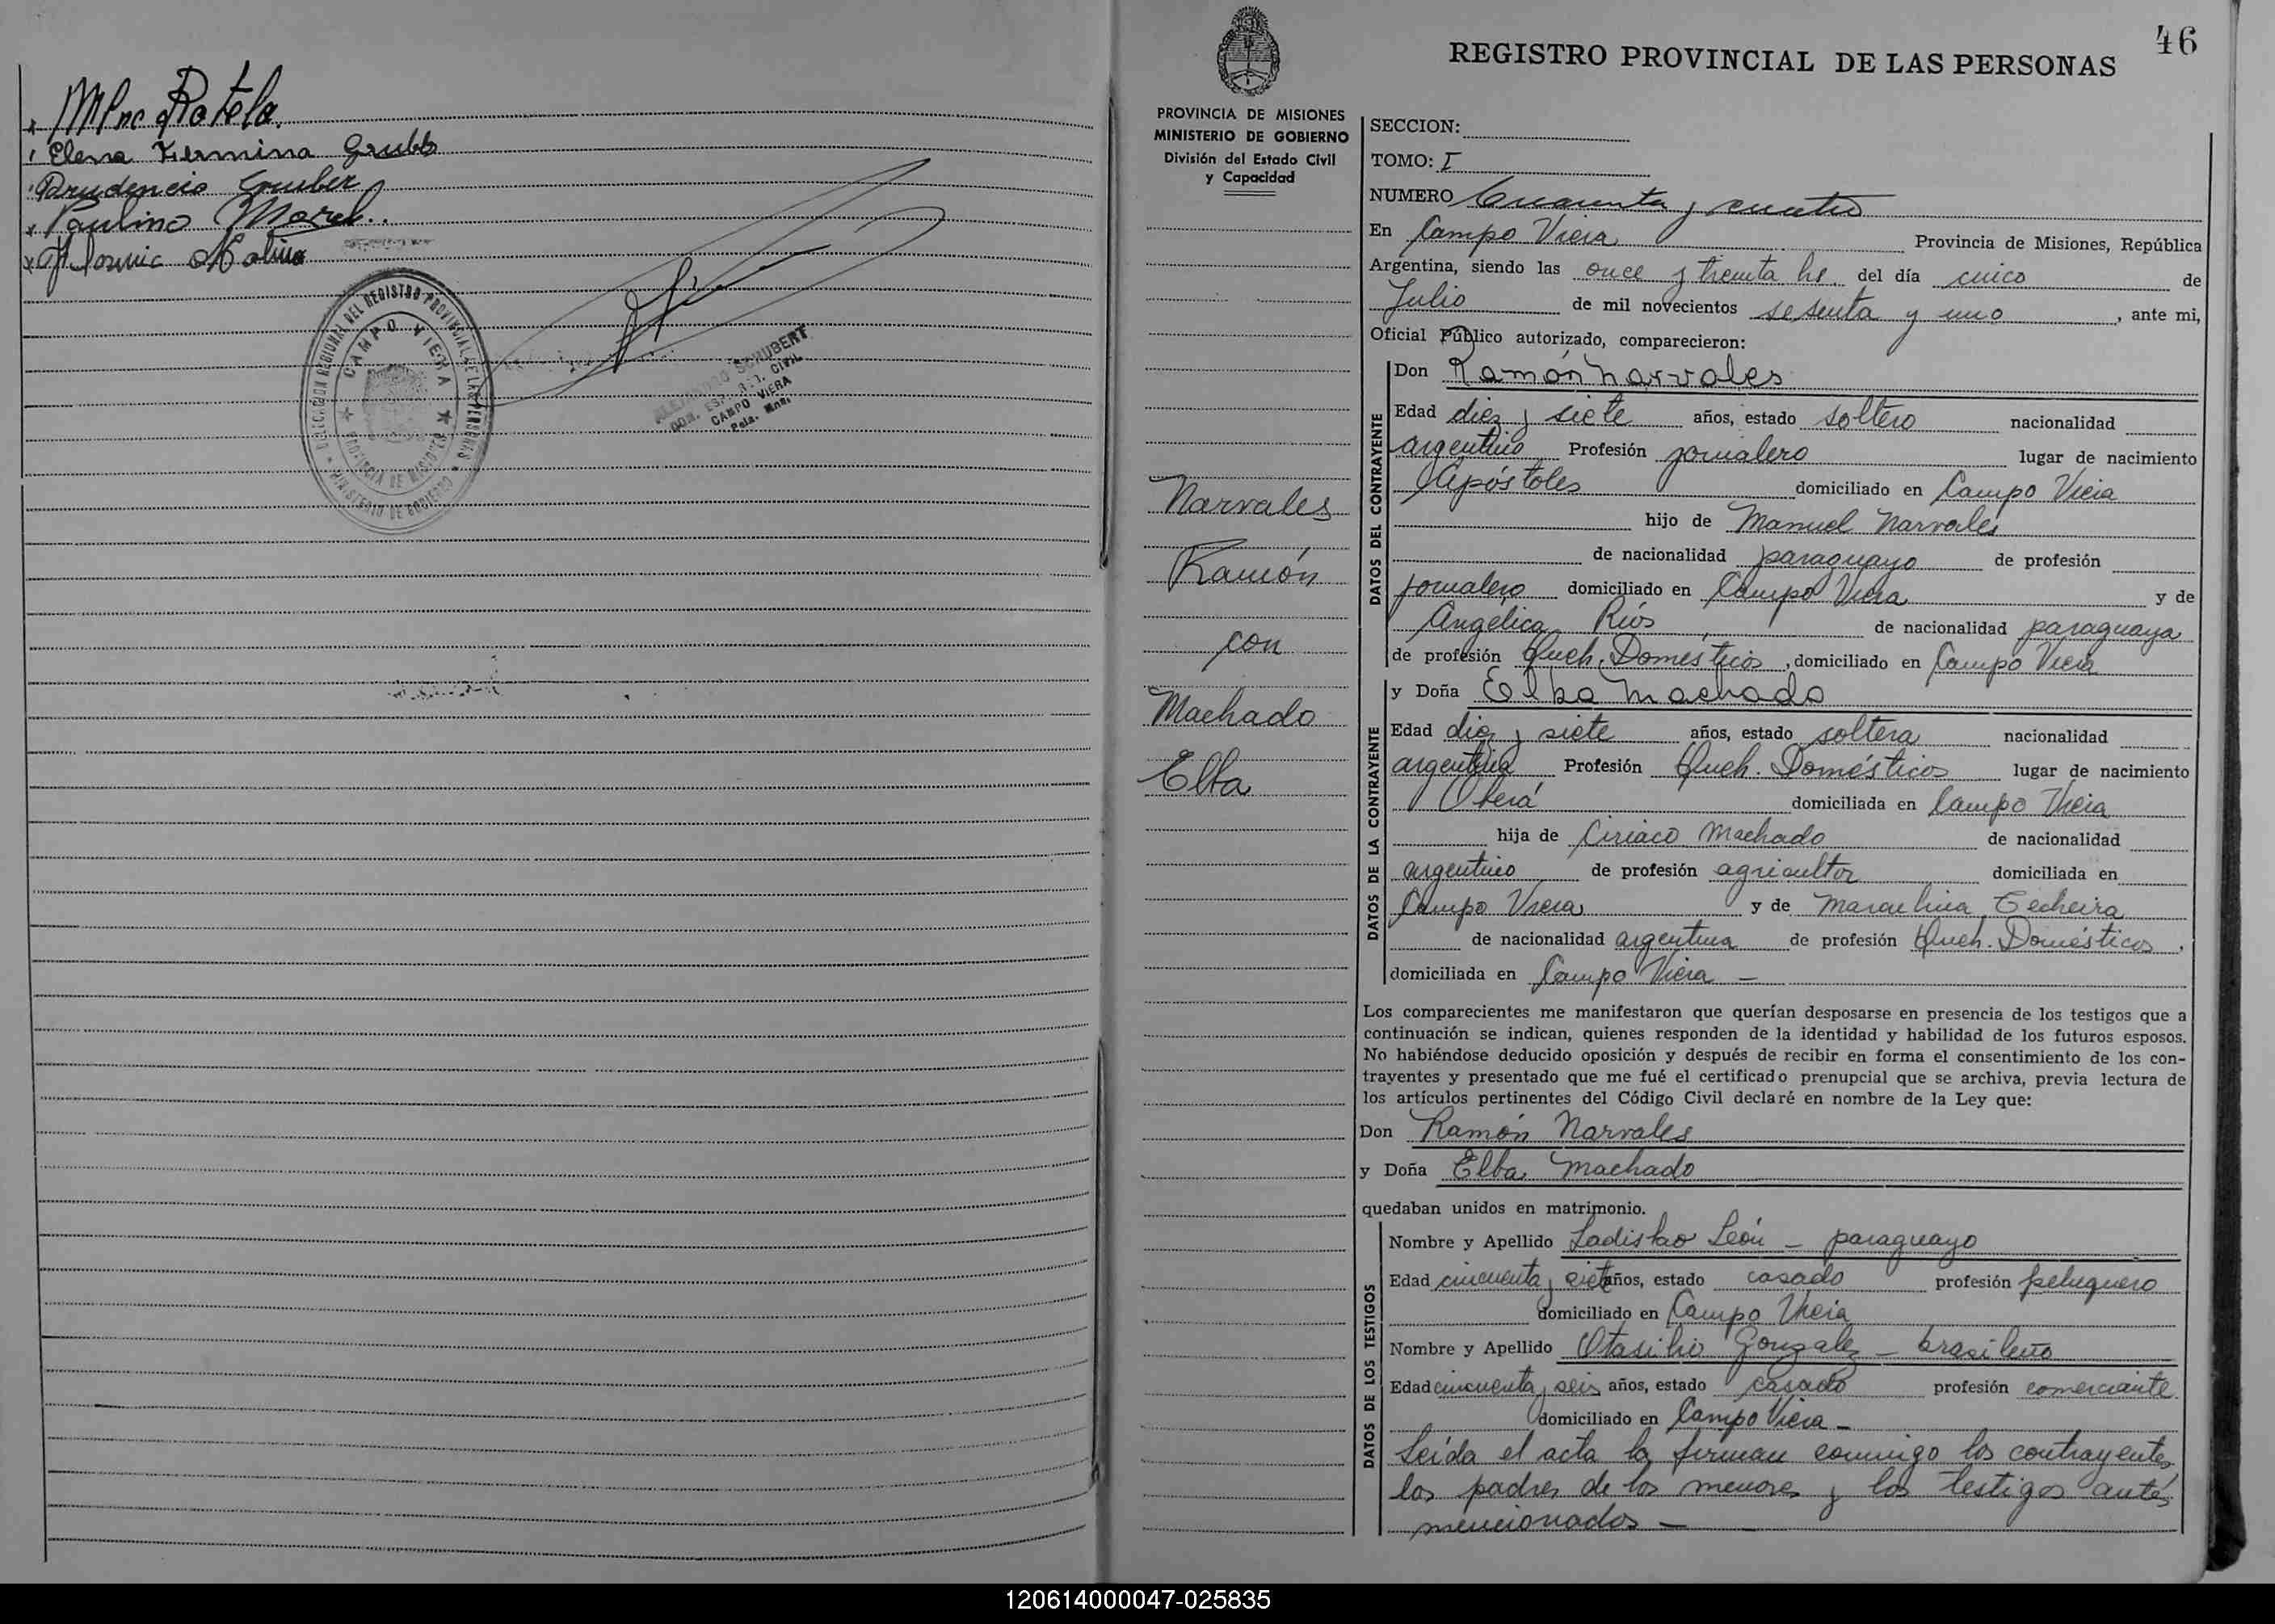 Rotela
Elena Fermina Grubb
Prudencio Gruber
Paulino Morel
Molina
DELEGACION REGIONAL DEL REGISTRO PROVINCIAL DE LAS PERSONAS
CAMPO VIERA
PROVINCIA DE MISIONES
MINISTERIO DE GOBIERNO
ALEJANDRO SCHUBERT
CIVIL
CAMPO VIERA
Pcia. Mnes.
46
REGISTRO PROVINCIAL DE LAS PERSONAS
PROVINCIA DE MISIONES
MINISTERIO DE GOBIERNO
División del Estado Civil
y Capacidad
Narvales
Ramón
con
Machado
Elba
SECCION:
TOMO: I
NUMERO Cuarenta y cuatro
En Campo Viera Provincia de Misiones, República
Argentina, siendo las once y treinta hs. del día cinco de
Julio de mil novecientos sesenta y uno, ante mi,
Oficial Público autorizado, comparecieron:
DATOS DEL CONTRAYENTE
Don Ramón Narvales
Edad diez y siete años, estado soltero nacionalidad
argentino Profesión jornalero lugar de nacimiento
Apóstoles domiciliado en Campo Viera
hijo de Manuel Narvales
de nacionalidad paraguayo de profesión
jornalero domiciliado en Campo Viera y de
Angélica Ríos de nacionalidad paraguaya
de profesión Queh. Domésticos, domiciliado en Campo Viera
DATOS DE LA CONTRAYENTE
y Doña Elba Machado
Edad diez y siete años, estado soltera nacionalidad
argentina Profesión Queh. Domésticos lugar de nacimiento
Oberá domiciliada en Campo Viera
hija de Ciriaco Machado de nacionalidad
argentino de profesión agricultor domiciliada en
Campo Viera y de Marcelina Techeira
de nacionalidad argentina de profesión Queh. Domésticos,
domiciliada en Campo Viera —
Los comparecientes me manifestaron que querían desposarse en presencia de los testigos que a
continuación se indican, quienes responden de la identidad y habilidad de los futuros esposos.
No habiéndose deducido oposición y después de recibir en forma el consentimiento de los con-
trayentes y presentado que me fué el certificado prenupcial que se archiva, previa lectura de
los artículos pertinentes del Código Civil declaré en nombre de la Ley que:
Don Ramón Narvales
y Doña Elba Machado
quedaban unidos en matrimonio.
DATOS DE LOS TESTIGOS
Nombre y Apellido Ladislao León — paraguayo
Edad cincuenta y siete años, estado casado profesión peluquero
domiciliado en Campo Viera
Nombre y Apellido Otasilio Gonzalez — brasileño
Edad cincuenta y seis años, estado casado profesión comerciante
domiciliado en Campo Viera —
Leída el acta la firman conmigo los contrayentes,
los padres de los menores y los testigos antes
mencionados —
120614000047-025835